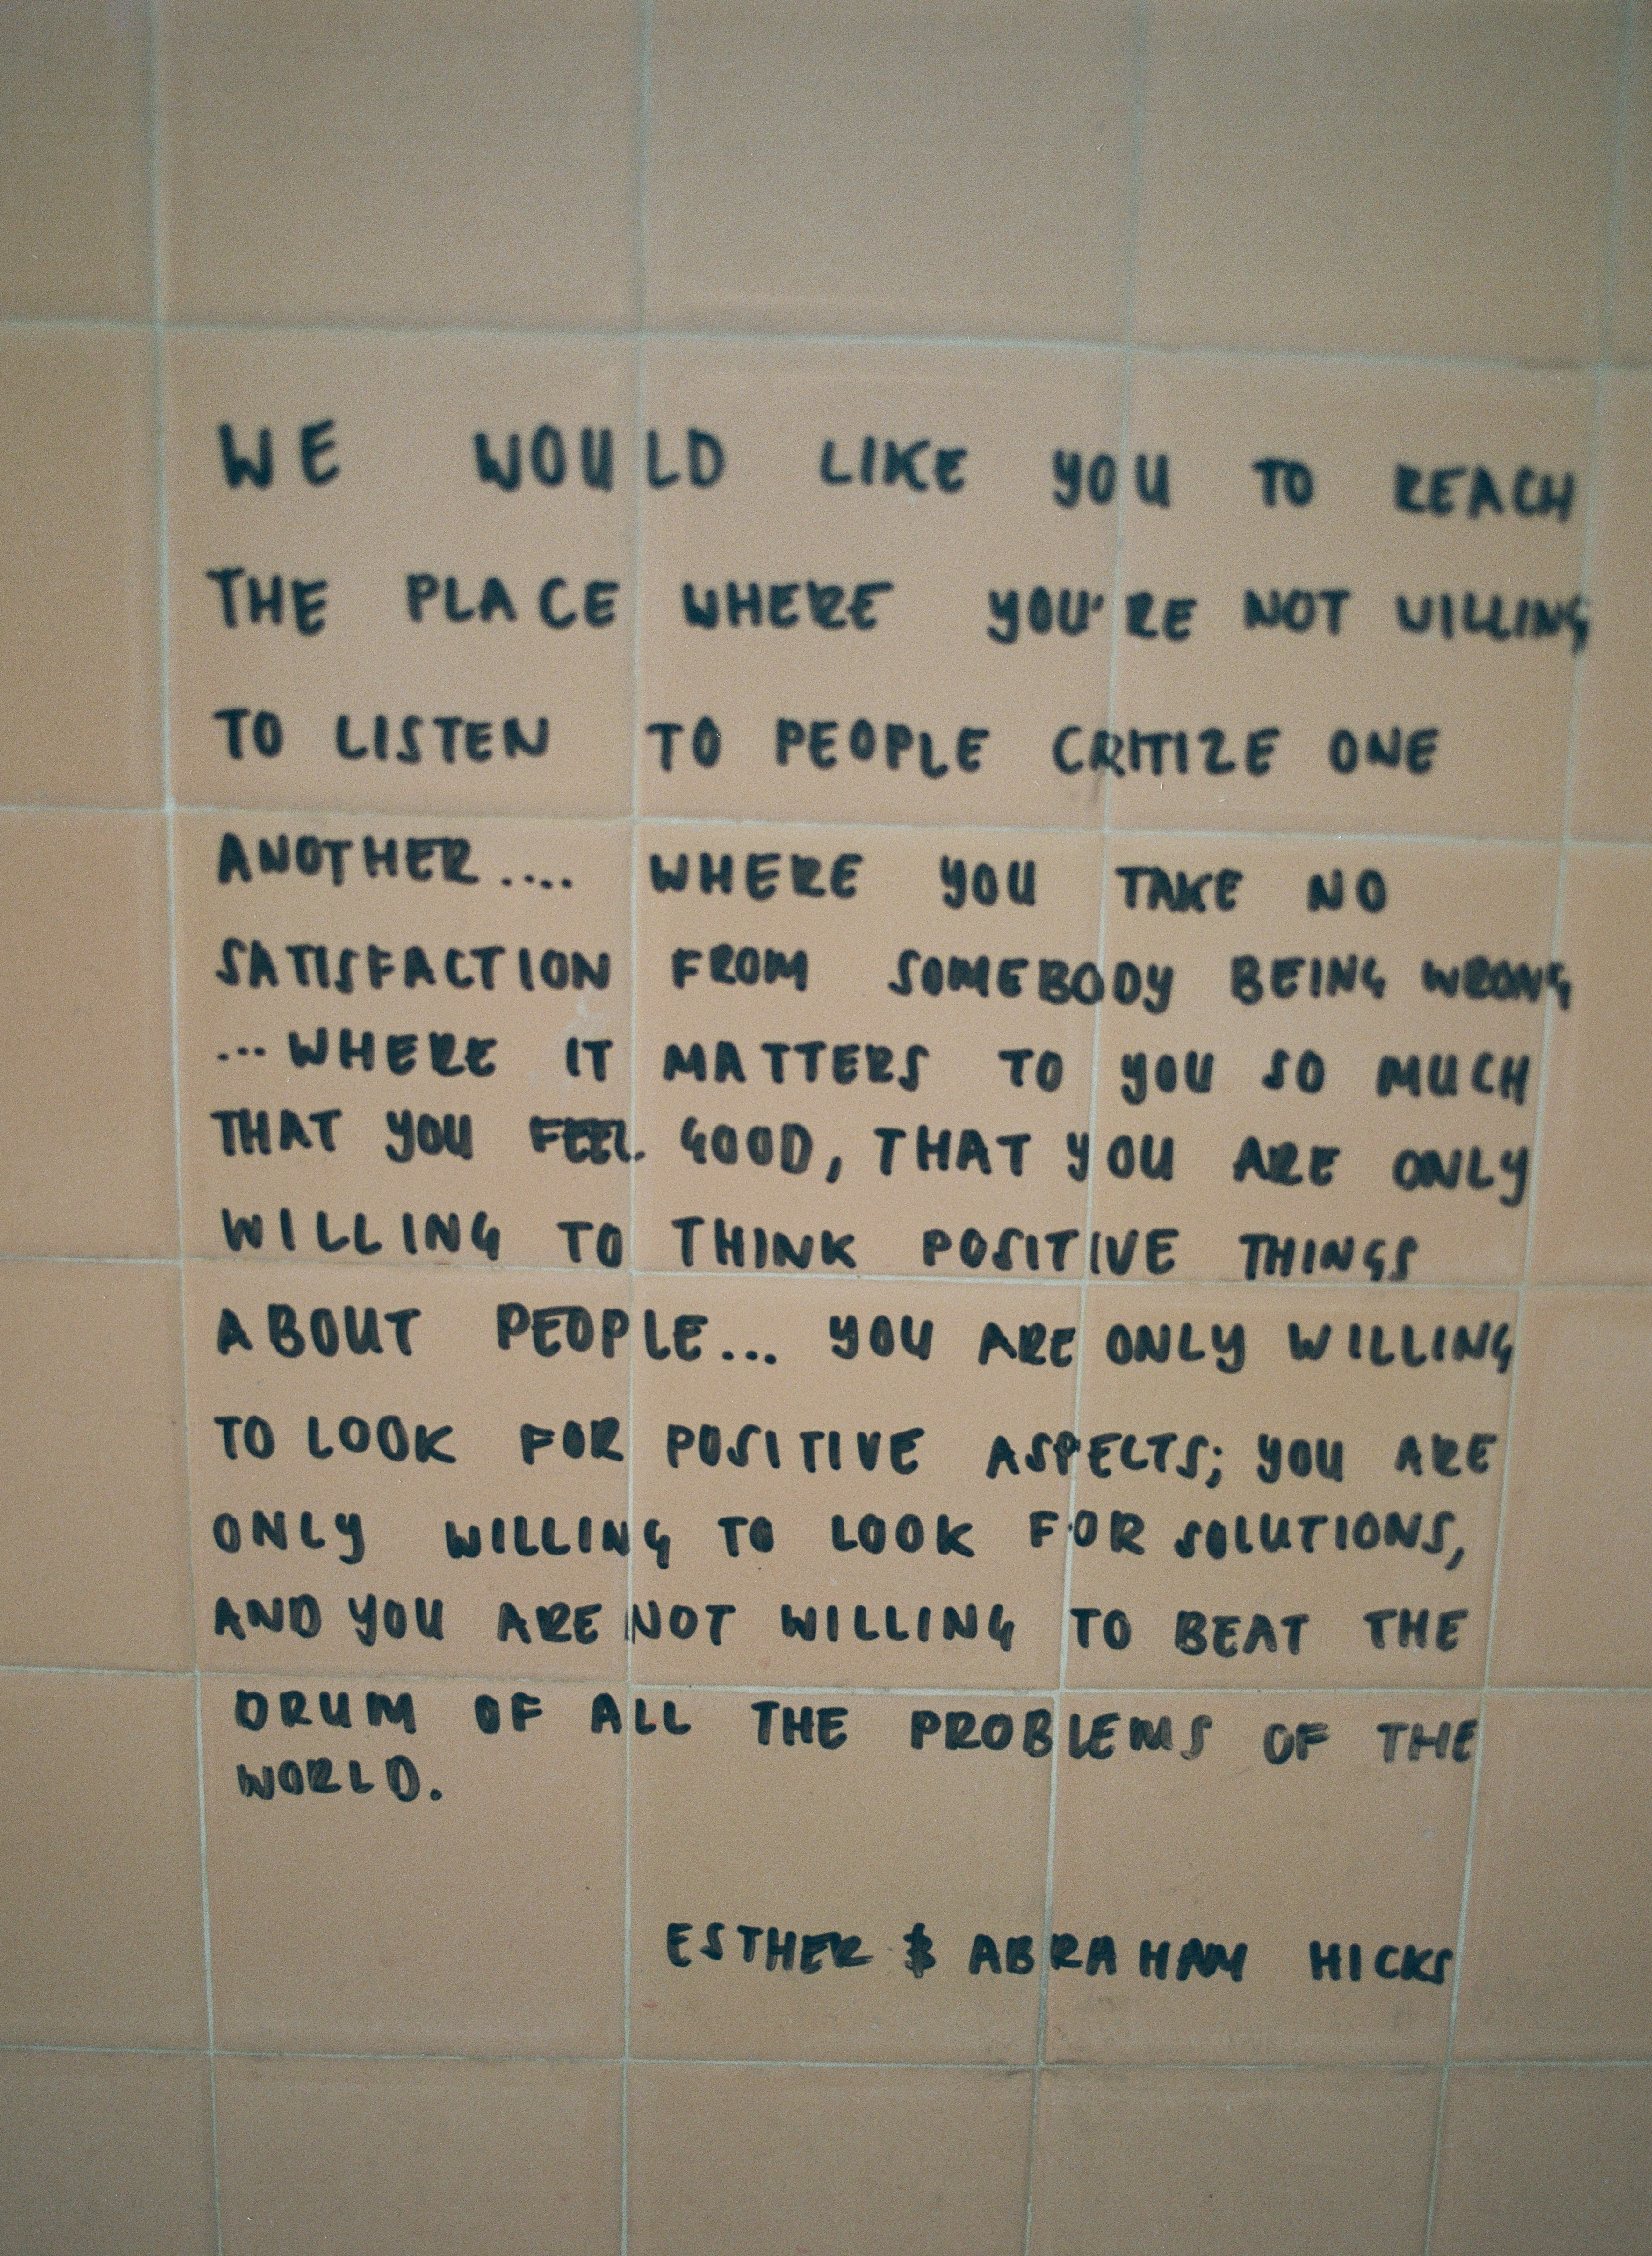 WE WOULD LIKE YOU TO REACH
THE PLACE WHERE YOU'RE NOT WILLING
TO LISTEN TO PEOPLE CRITIZE ONE
ANOTHER.... WHERE YOU TAKE NO
SATISFACTION FROM SOMEBODY BEING WRONG
...WHERE IT MATTERS TO YOU SO MUCH
THAT YOU FEEL GOOD, THAT YOU ARE ONLY
WILLING TO THINK POSITIVE THINGS
ABOUT PEOPLE... YOU ARE ONLY WILLING
TO LOOK FOR POSITIVE ASPECTS; YOU ARE
ONLY WILLING TO LOOK FOR SOLUTIONS,
AND YOU ARE NOT WILLING TO BEAT THE
DRUM OF ALL THE PROBLEMS OF THE
WORLD.
ESTHER & ABRAHAM HICKS